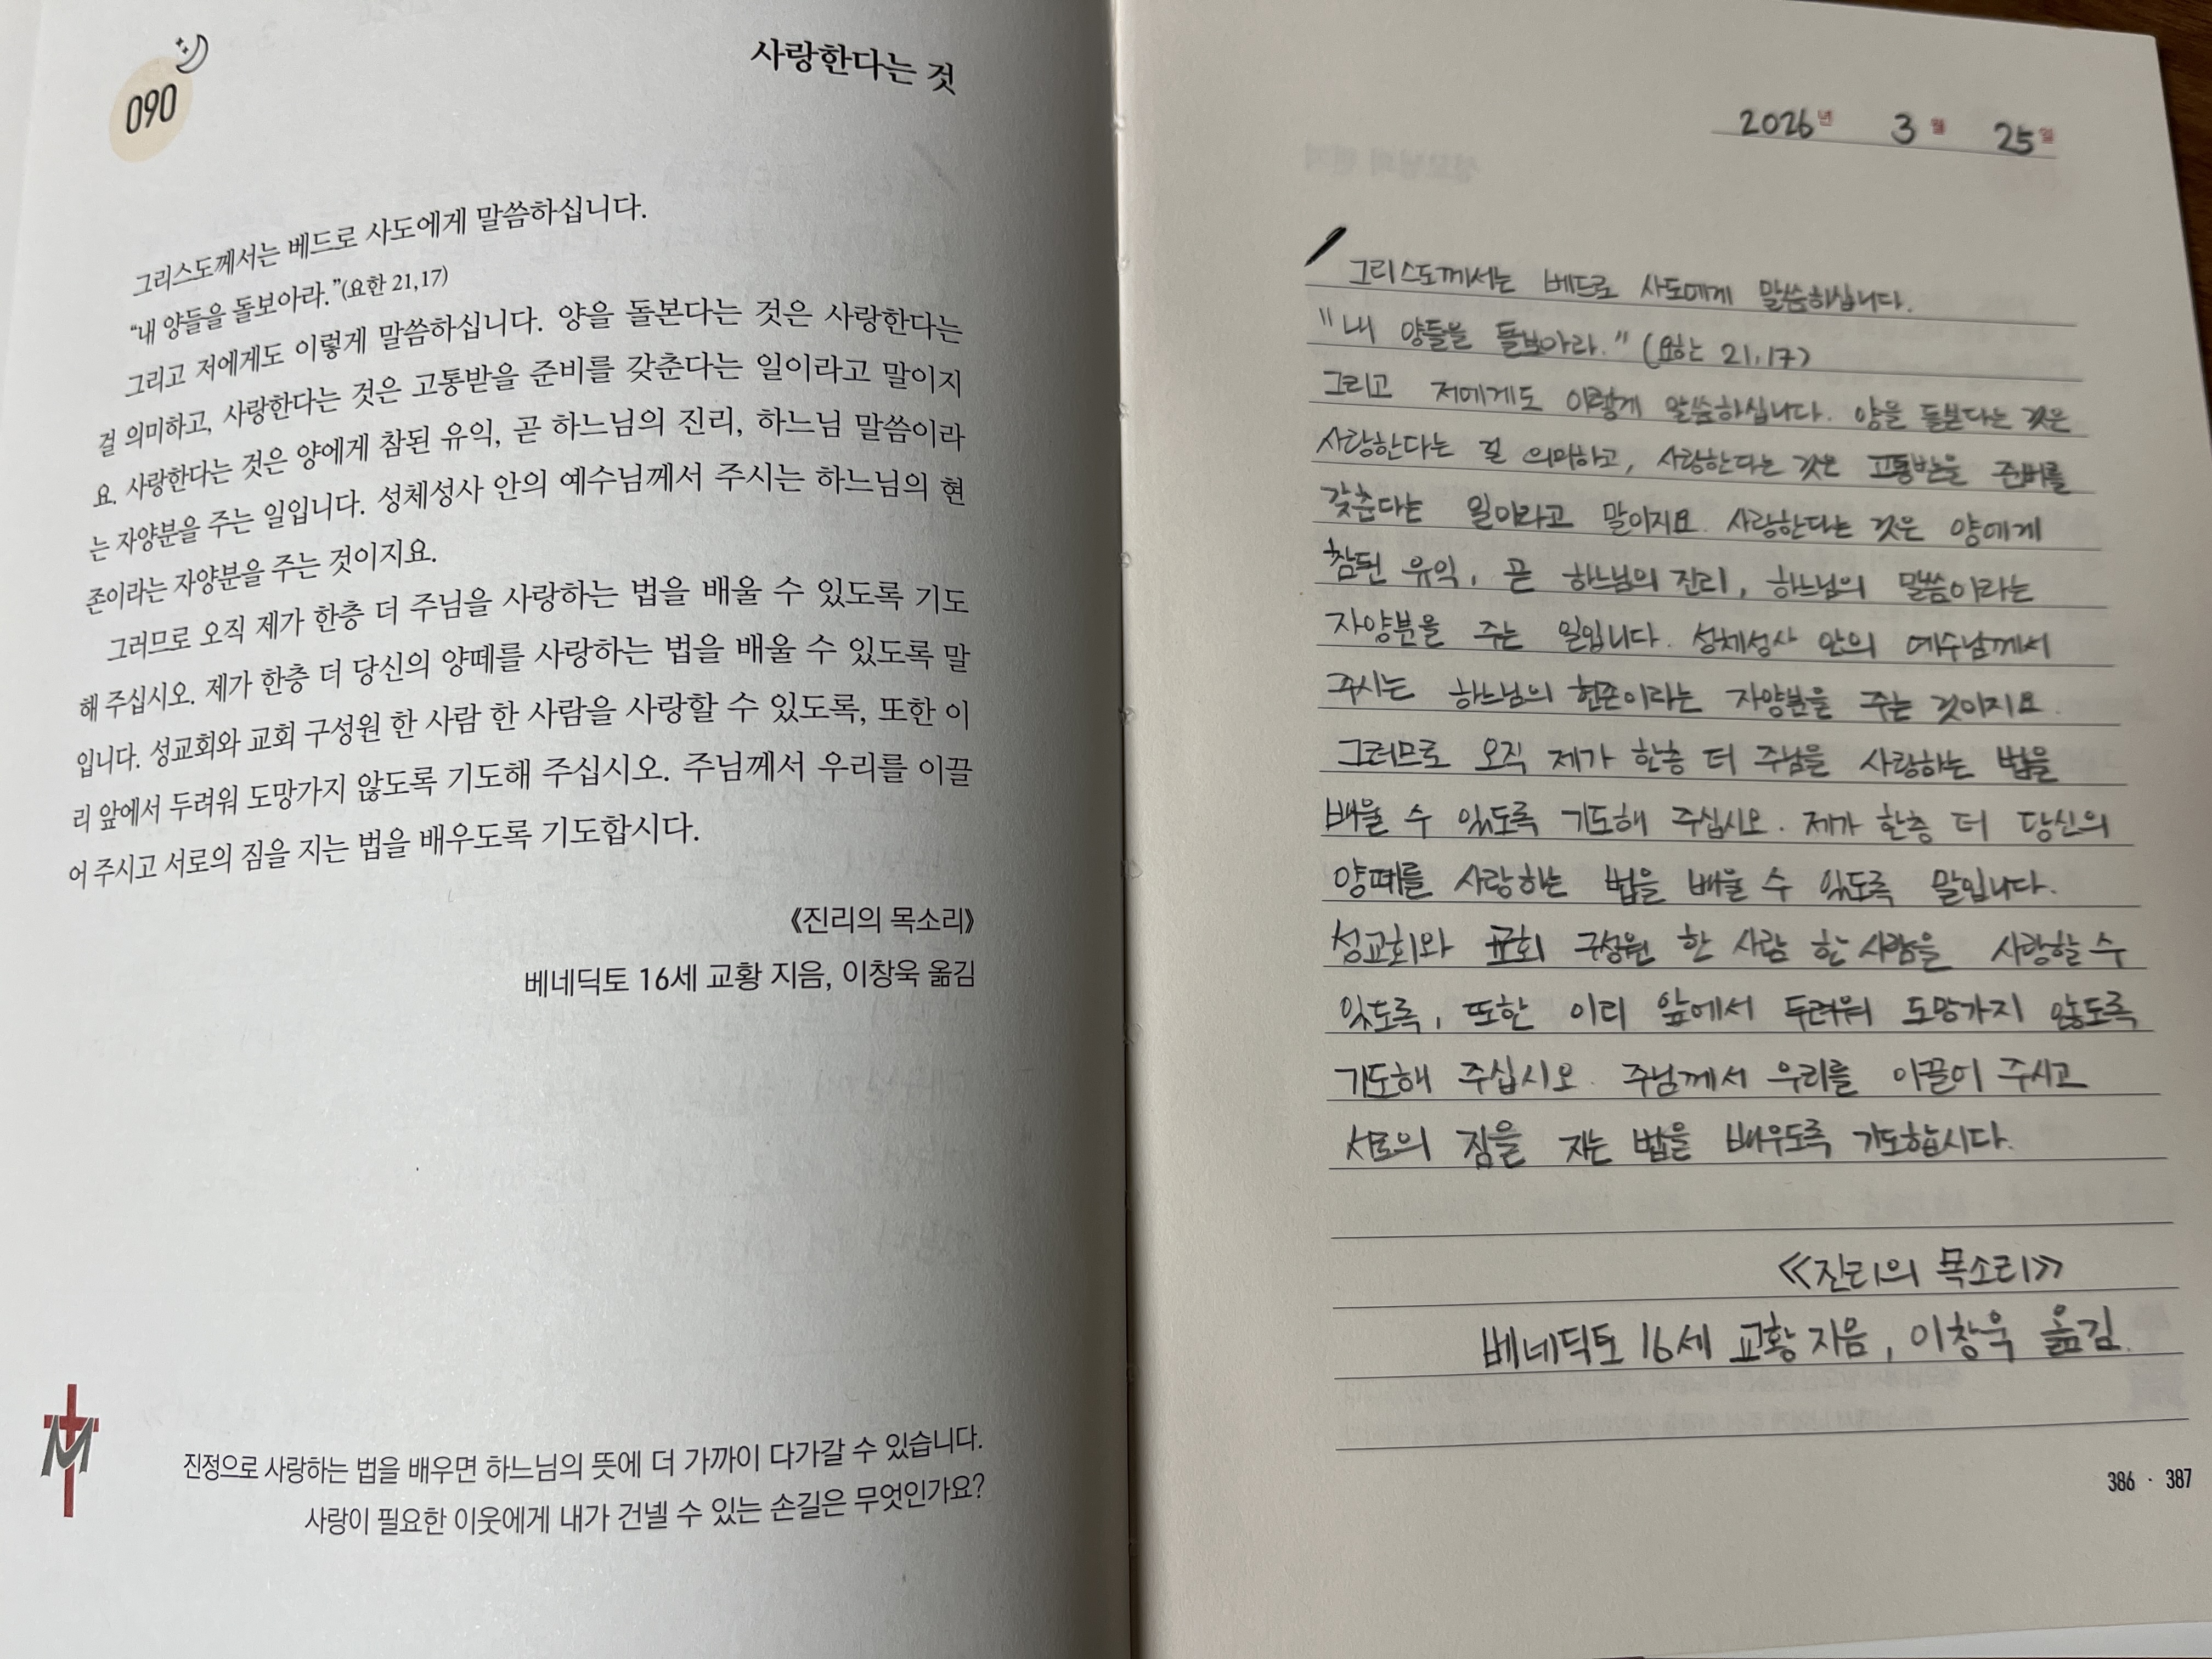 090
사랑한다는 것
그리스도께서는 베드로 사도에게 말씀하십니다.
“내 양들을 돌보아라.”(요한 21,17)
그리고 저에게도 이렇게 말씀하십니다. 양을 돌본다는 것은 사랑한다는
걸 의미하고, 사랑한다는 것은 고통받을 준비를 갖춘다는 일이라고 말이지
요. 사랑한다는 것은 양에게 참된 유익, 곧 하느님의 진리, 하느님 말씀이라
는 자양분을 주는 일입니다. 성체성사 안의 예수님께서 주시는 하느님의 현
존이라는 자양분을 주는 것이지요.
그러므로 오직 제가 한층 더 주님을 사랑하는 법을 배울 수 있도록 기도
해 주십시오. 제가 한층 더 당신의 양떼를 사랑하는 법을 배울 수 있도록 말
입니다. 성교회와 교회 구성원 한 사람 한 사람을 사랑할 수 있도록, 또한 이
리 앞에서 두려워 도망가지 않도록 기도해 주십시오. 주님께서 우리를 이끌
어 주시고 서로의 짐을 지는 법을 배우도록 기도합시다.
《진리의 목소리》
베네딕토 16세 교황 지음, 이창욱 옮김
진정으로 사랑하는 법을 배우면 하느님의 뜻에 더 가까이 다가갈 수 있습니다.
사랑이 필요한 이웃에게 내가 건넬 수 있는 손길은 무엇인가요?
2026년 3월 25일
그리스도께서는 베드로 사도에게 말씀하십니다.
"내 양들을 돌보아라." ( 21,17)
그리고 저에게도 이렇게 말씀하십니다. 양을 돌본다는 것은
사랑한다는 걸 의미하고, 사랑한다는 것은 고통받을 준비를
갖춘다는 일이라고 말이지요. 사랑한다는 것은 양에게
참된 유익, 곧 하느님의 진리, 하느님의 말씀이라는
자양분을 주는 일입니다. 성체성사 안의 예수님께서
주시는 하느님의 현존이라는 자양분을 주는 것이지요.
그러므로 오직 제가 한층 더 주님을 사랑하는 법을
배울 수 있도록 기도해 주십시오. 제가 한층 더 당신의
양떼를 사랑하는 법을 배울 수 있도록 말입니다.
성교회와 교회 구성원 한 사람 한 사람을 사랑할 수
있도록, 또한 이리 앞에서 두려워 도망가지 않도록
기도해 주십시오. 주님께서 우리를 이끌어 주시고
서로의 짐을 지는 법을 배우도록 기도합시다.
《진리의 목소리》
베네딕토 16세 교황 지음, 이창욱 옮김.
386 · 387